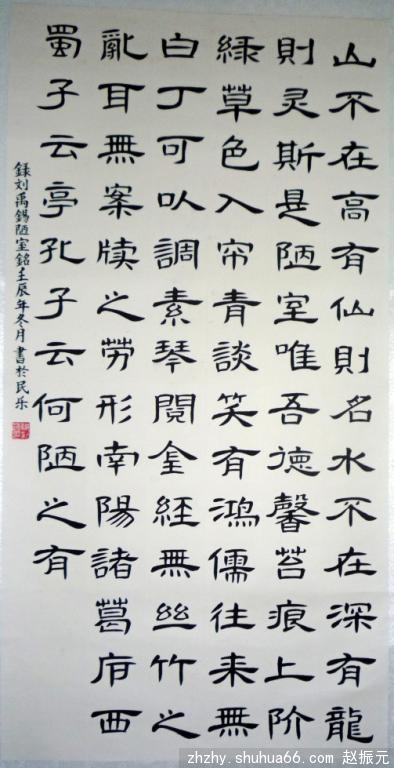 山不在高有仙則名水不在深有龍
則灵斯是陋室唯吾德馨苔痕上阶
緑草色入帘青談笑有鴻儒往来無
白丁可以調素琴閲金経無丝竹之
亂耳無案牍之劳形南陽諸葛庐西
蜀子云亭孔子云何陋之有
録刘禹錫陋室銘壬辰年冬月書於民乐
zhzhy.shuhua66.com 赵振元